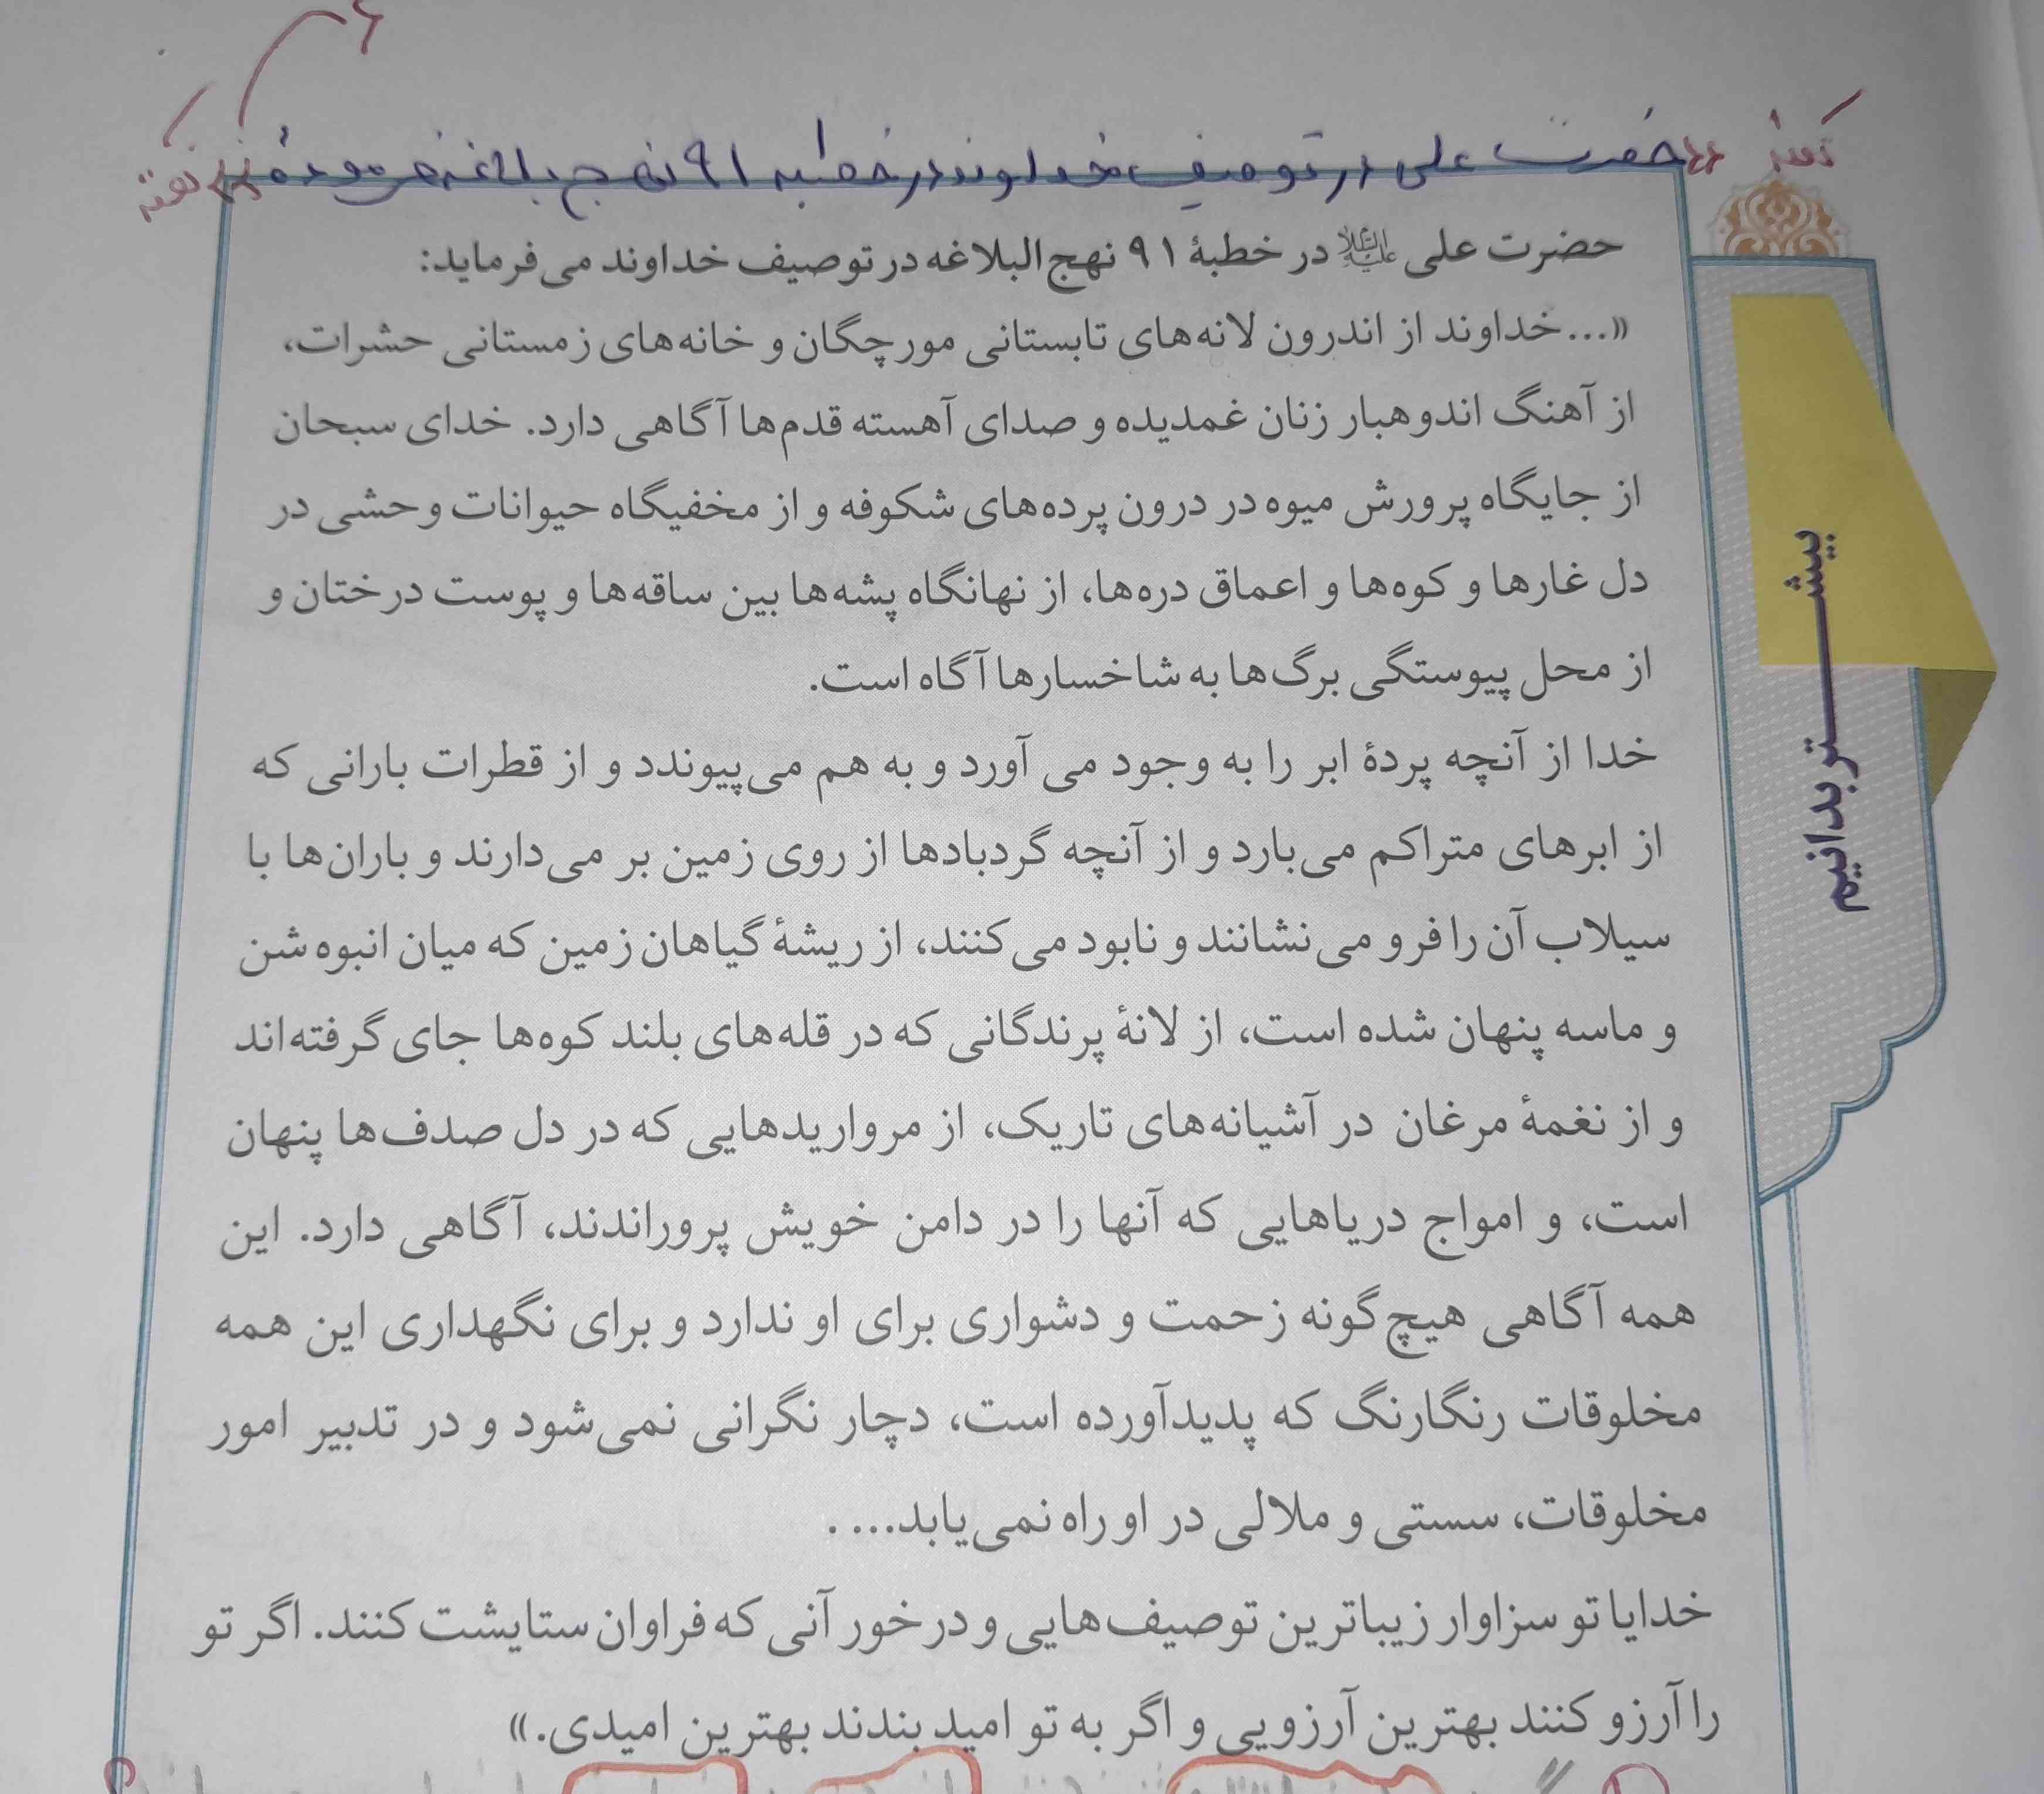 حضرت علی در توصیف خداوند در خطبه ۹۱ نهج بلاغه فرموده
حضرت علی علیه‌السلام در خطبهٔ ۹۱ نهج‌البلاغه در توصیف خداوند می‌فرماید:
«...خداوند از اندرون لانه‌های تابستانی مورچگان و خانه‌های زمستانی حشرات،
از آهنگ اندوهبار زنان غمدیده و صدای آهسته قدم‌ها آگاهی دارد. خدای سبحان
از جایگاه پرورش میوه در درون پرده‌های شکوفه و از مخفیگاه حیوانات وحشی در
دل غارها و کوه‌ها و اعماق دره‌ها، از نهانگاه پشه‌ها بین ساقه‌ها و پوست درختان و
از محل پیوستگی برگ‌ها به شاخسارها آگاه است.
خدا از آنچه پردهٔ ابر را به وجود می آورد و به هم می‌پیوندد و از قطرات بارانی که
از ابرهای متراکم می‌بارد و از آنچه گردبادها از روی زمین بر می‌دارند و باران‌ها با
سیلاب آن را فرو می‌نشانند و نابود می‌کنند، از ریشهٔ گیاهان زمین که میان انبوه شن
و ماسه پنهان شده است، از لانهٔ پرندگانی که در قله‌های بلند کوه‌ها جای گرفته‌اند
و از نغمهٔ مرغان در آشیانه‌های تاریک، از مرواریدهایی که در دل صدف‌ها پنهان
است، و امواج دریاهایی که آنها را در دامن خویش پروراندند، آگاهی دارد. این
همه آگاهی هیچ‌گونه زحمت و دشواری برای او ندارد و برای نگهداری این همه
مخلوقات رنگارنگ که پدیدآورده است، دچار نگرانی نمی‌شود و در تدبیر امور
مخلوقات، سستی و ملالی در او راه نمی‌یابد.... .
خدایا تو سزاوار زیباترین توصیف‌هایی و درخور آنی که فراوان ستایشت کنند. اگر تو
را آرزو کنند بهترین آرزویی و اگر به تو امید بندند بهترین امیدی.»
بیشتر بدانیم